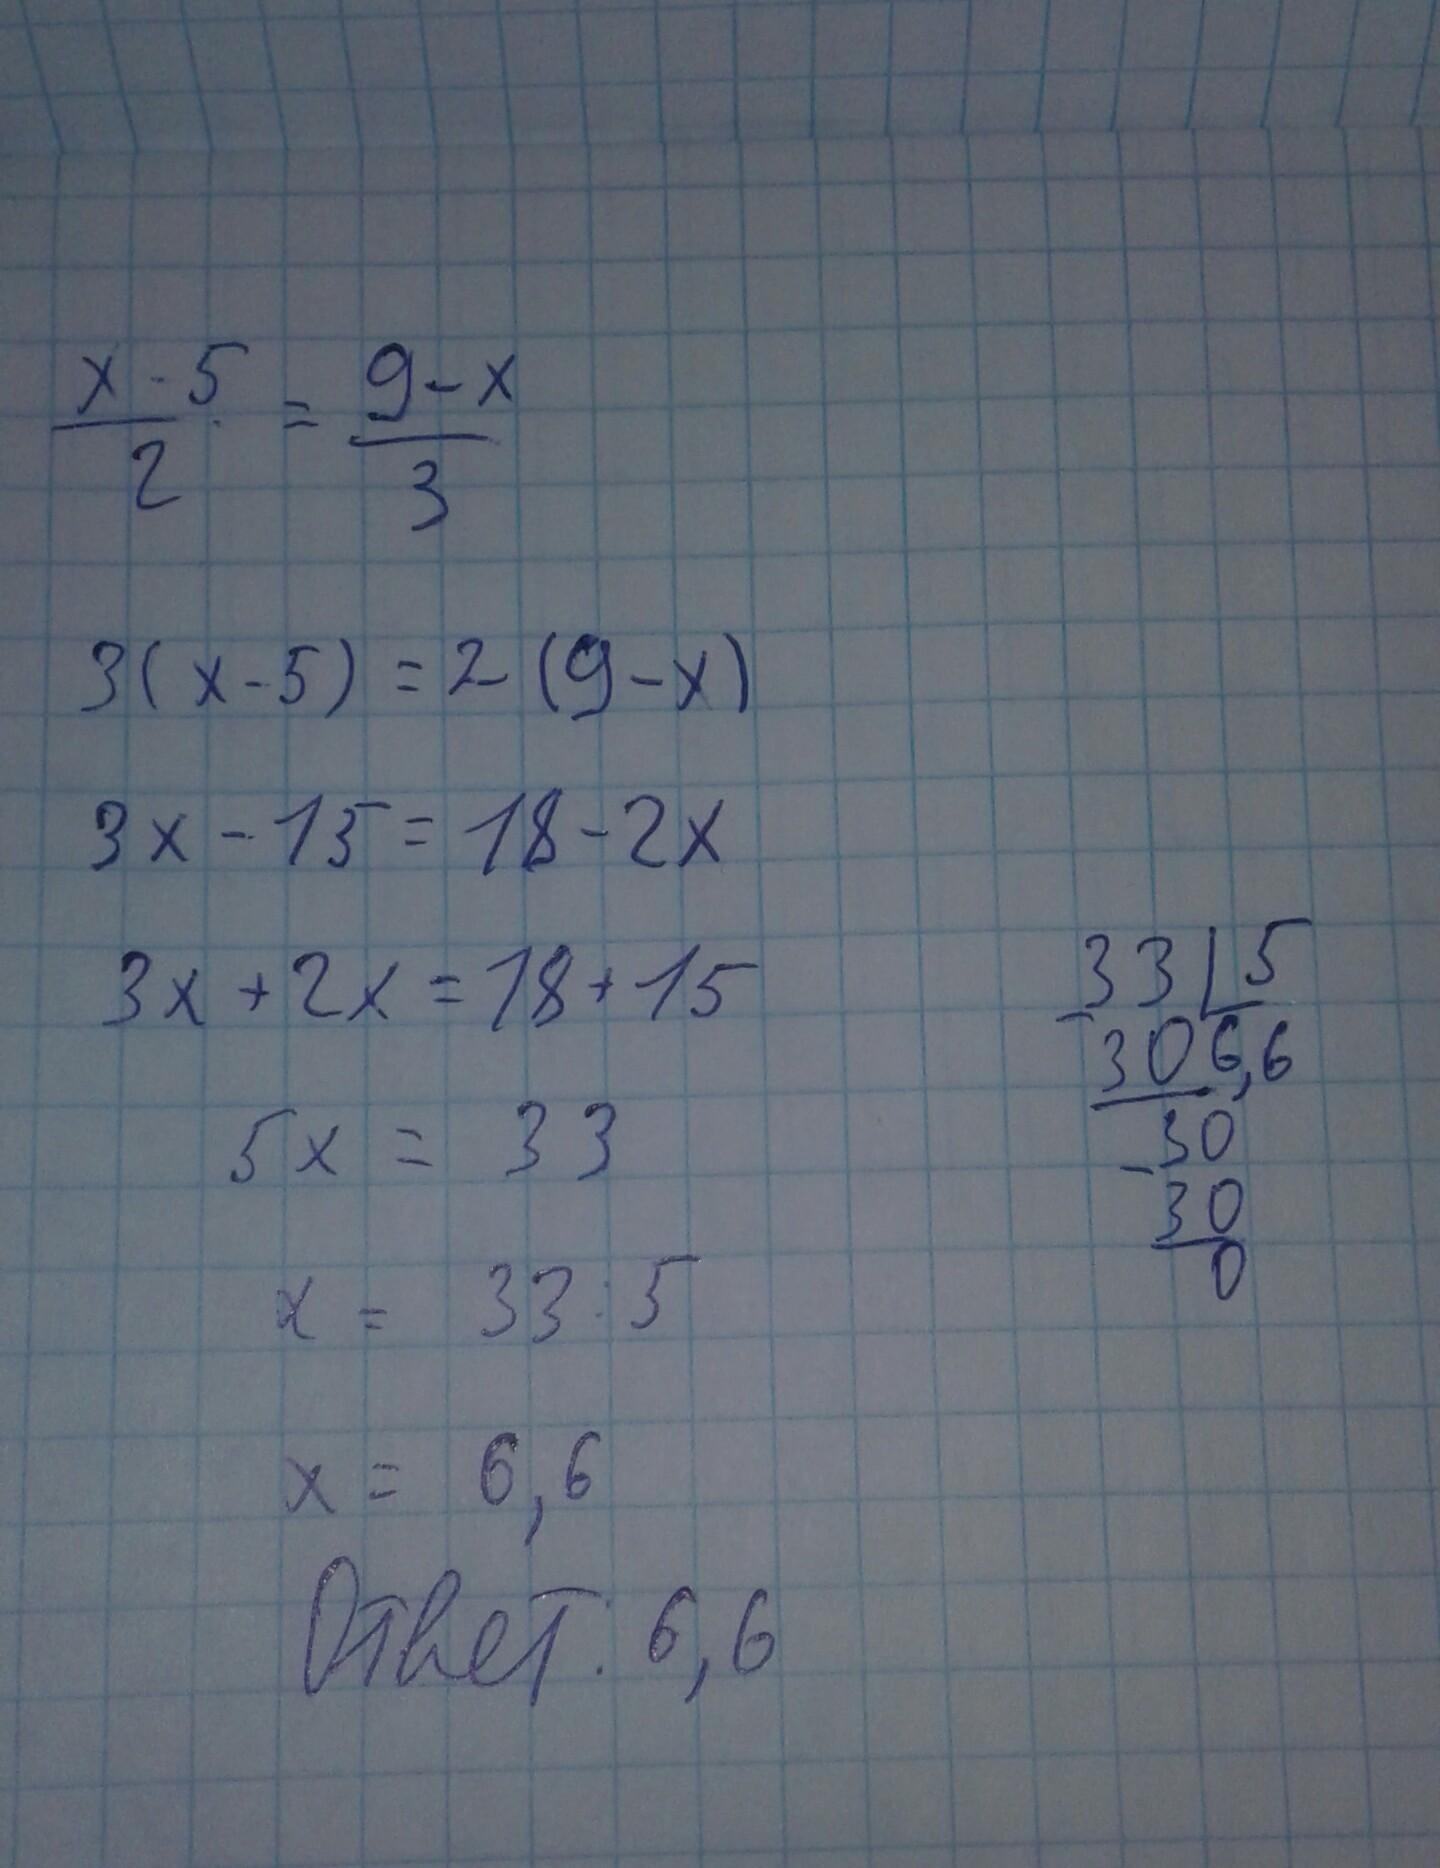 x-5/2 = 9-x/3
3(x-5)=2(9-x)
3x-15=18-2x
3x+2x=18+15
5x = 33
x = 33:5
x = 6,6
Ответ: 6,6
33|5
-30 6,6
30
-30
0